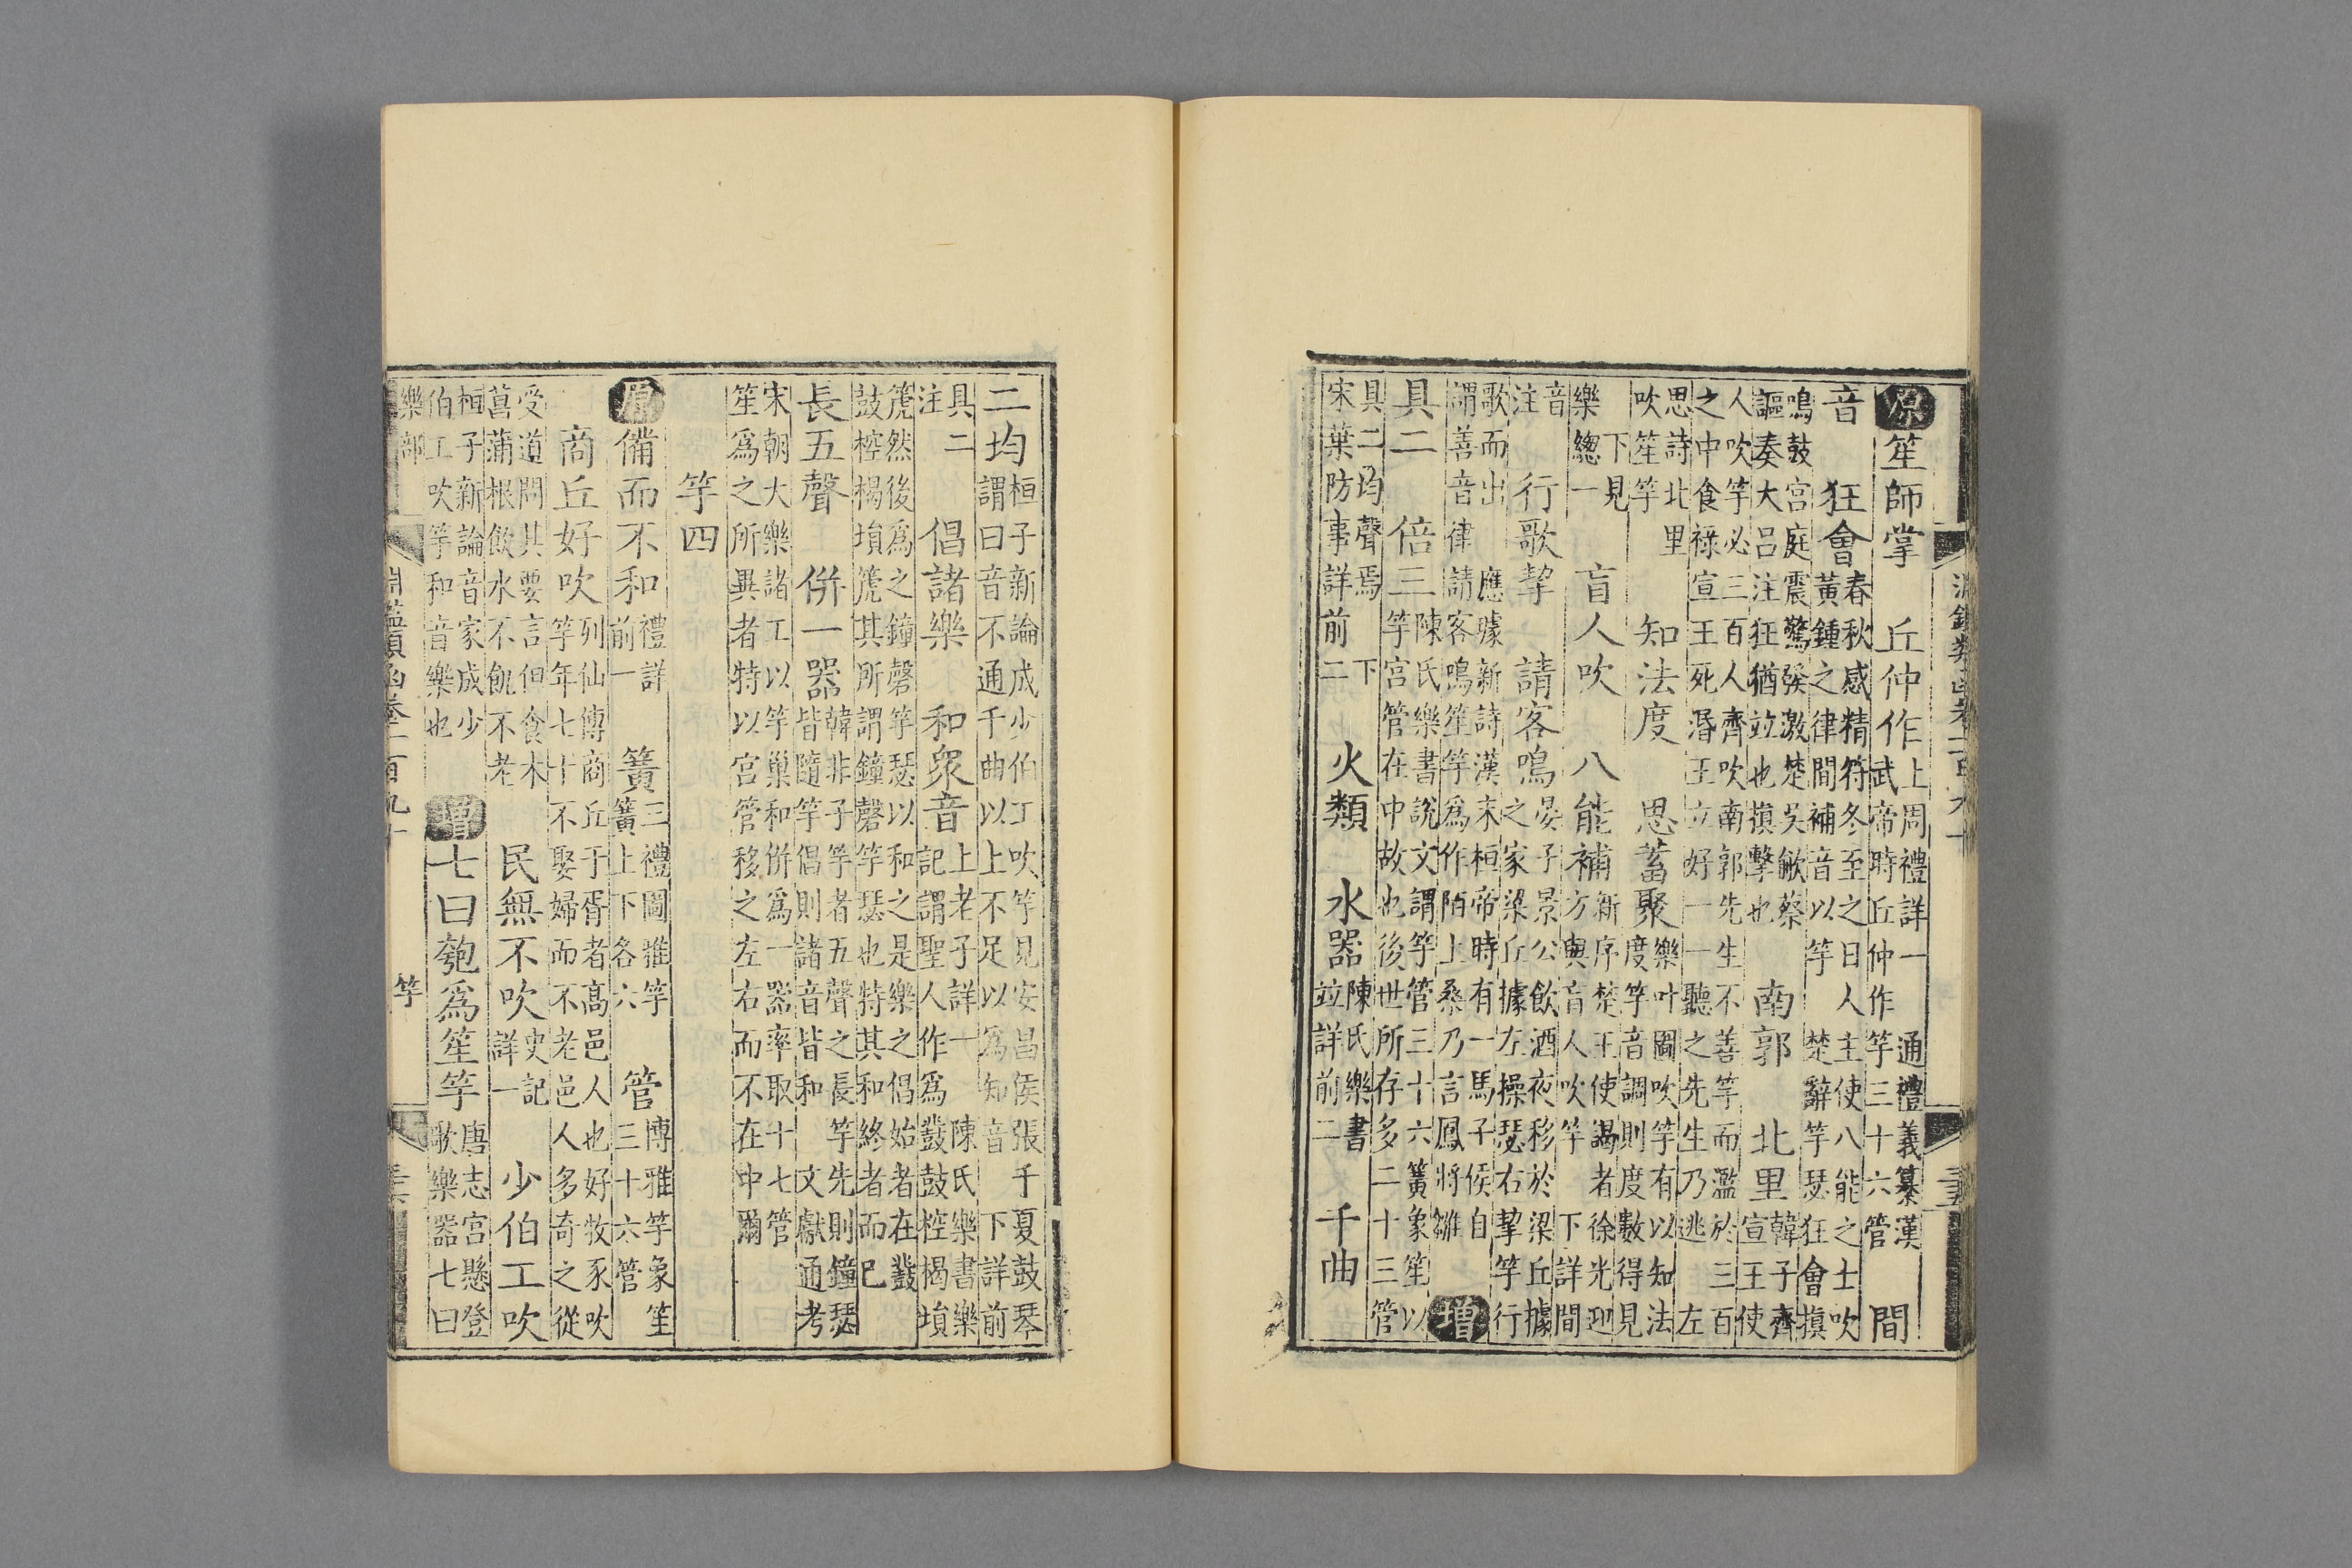 淵鑑類函卷一百九十
原笙師掌 丘仲作上周禮詳一 通禮義纂漢武帝時丘仲作竽三十六管 間
音 狂會春秋感精符冬至之日人主使八能之士吹黃鍾之律間補音以竽 楚辭竽瑟狂會搷
鳴鼓宮庭震驚發激楚吳歈蔡謳奏大呂注狂猶竝也搷擊也 南郭 北里韓子齊宣王使
人吹竽必三百人齊吹南郭先生不善竽而濫於三百之中食祿宣王死湣王立好一一聽之先生乃逃 左
思詩北里吹笙竽 知法度 思蓄聚樂叶圖吹竽有以知法度竽音調則度數得見
下見樂總一 盲人吹 八能補新序楚王使謁者徐光迎方與盲人吹竽 下詳間
音注 行歌挈 請客鳴晏子景公飲酒夜移於梁丘據之家梁丘據左操瑟右挈竽行
歌而出 應璩新詩漢末桓帝時有一馬子侯自謂善音律請客鳴笙竽爲作陌上桑乃言鳳將雛 增
具二 倍三陳氏樂書說文謂竽管三十六簧象笙以竽宮管在中故也後世所存多二十三管
具二均聲焉 下宋葉防事詳前二 火類 水器陳氏樂書竝詳前二 千曲
二均桓子新論成少伯工吹竽見安昌侯張千夏鼓琴謂曰音不通千曲以上不足以爲知音 下詳前
具二注 倡諸樂 和衆音上老子詳一 陳氏樂書樂記謂聖人作爲鼗鼓椌楬塤
篪然後爲之鐘磬竽瑟以和之是樂之倡始者在鼗鼓椌楬塤篪其所謂鐘磬竽瑟也特其和終者而已
長五聲 併一器韓非子竽者五聲之長竽先則鐘瑟皆隨竽倡則諸音皆和 文獻通考
宋朝大樂諸工以竽巢和併爲一器率取十七管笙爲之所異者特以宮管移之左右而不在中爾
竽四
原備而不和禮詳前一 簧三禮圖雅竽簧上下各六 管博雅竽象笙三十六管
商丘好吹列仙傳商丘子胥者高邑人也好牧豕吹竽年七十不娶婦而不老邑人多奇之從
受道問其要言但食木菖蒲根飲水不飢不老 民無不吹史記詳一 少伯工吹
桓子新論音家成少伯工吹竽和音樂也 增七曰匏爲笙竽唐志宮懸登歌樂器七曰
樂部 淵鑑類函卷一百九十 竽